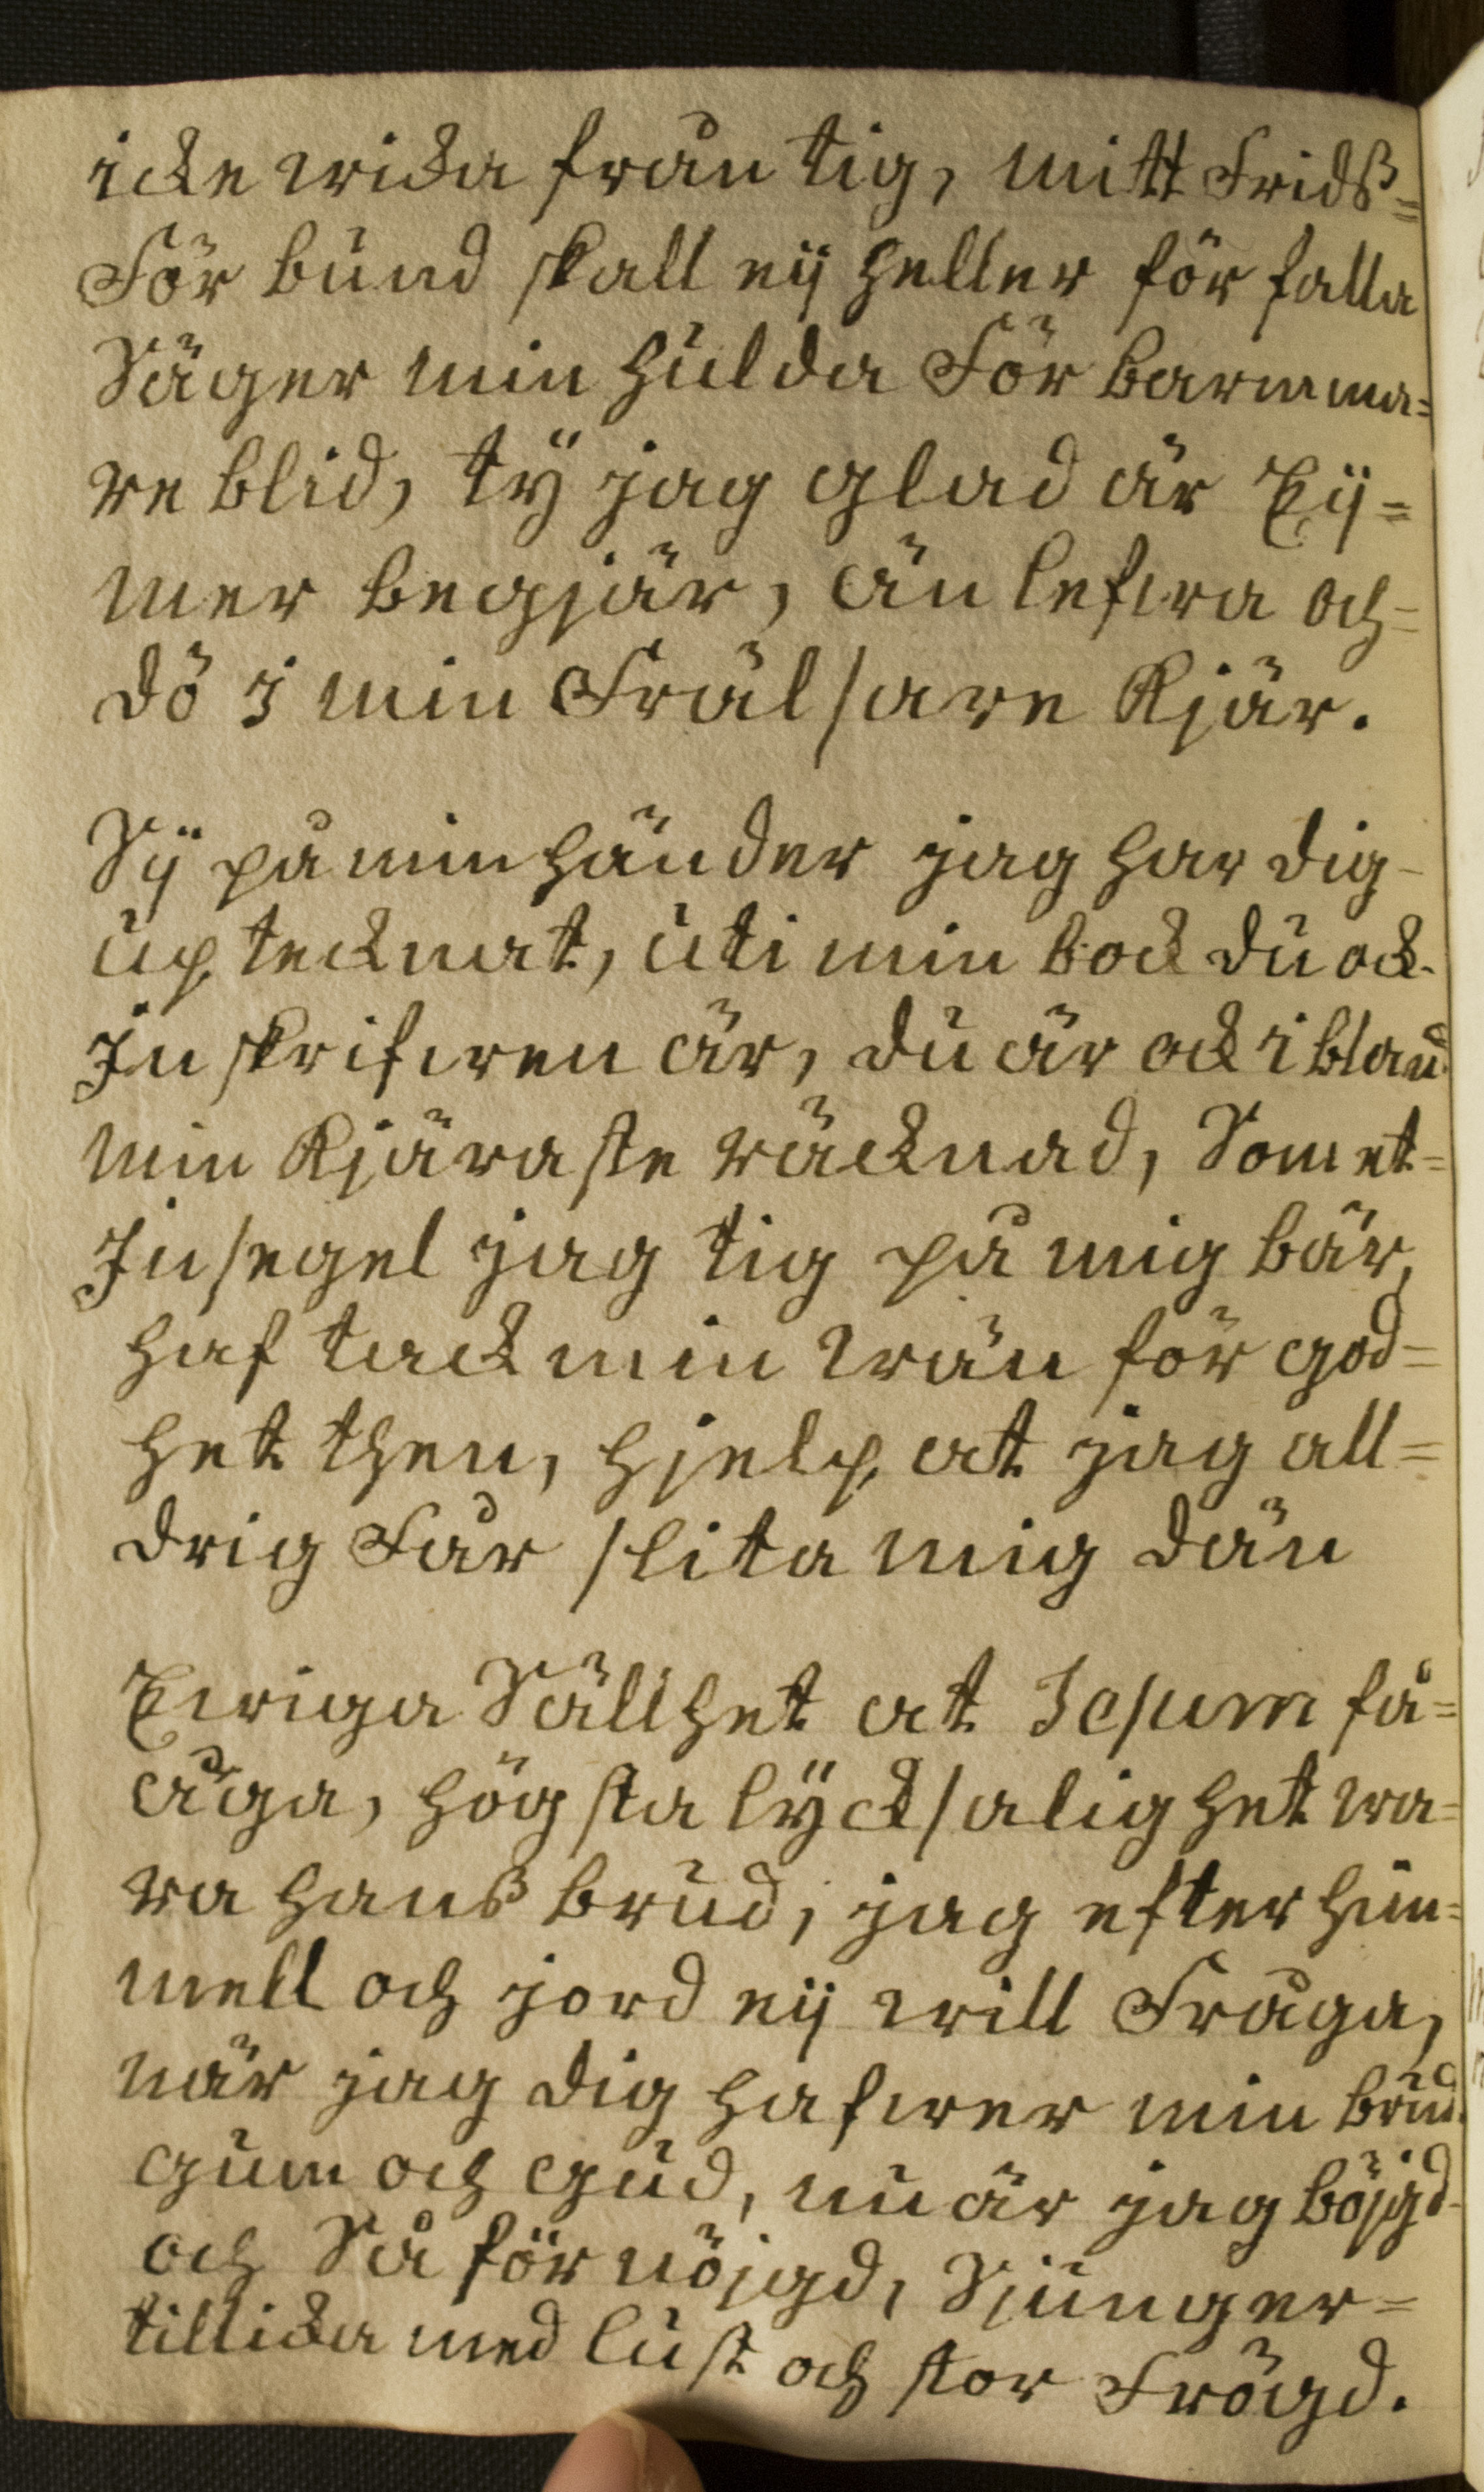 icke wicka från tig, mitt Fridß=
För bund skall eij heller för falla
Säger min hulda För barmma=
re blid, tÿ jag glad är Eij=
mer begjär, än lefwa och=
dö i min Frälsare Kjär.
Sij på min händer jag har dig-
up tecknat, uti min bock du ock-
In skrifwen är, du är ock i bland
min Kjäraste räcknad, Som et=
Insegel jag tig på mig bär,
haf tack min wän för god=
het then, hjelp at jag all=
drig Får slita mig dän
Ewiga Sällhet at Jesum få=
äga, högsta lÿcksalighet wa=
ra hanß brud, jag efter him=
mell och jord eij will Fråga,
när jag dig hafwer min brud
gum och gud, nu är jag böjgd-
och Så för nöjgd, Sjunger=
tillicka med lust och stor Frögd.